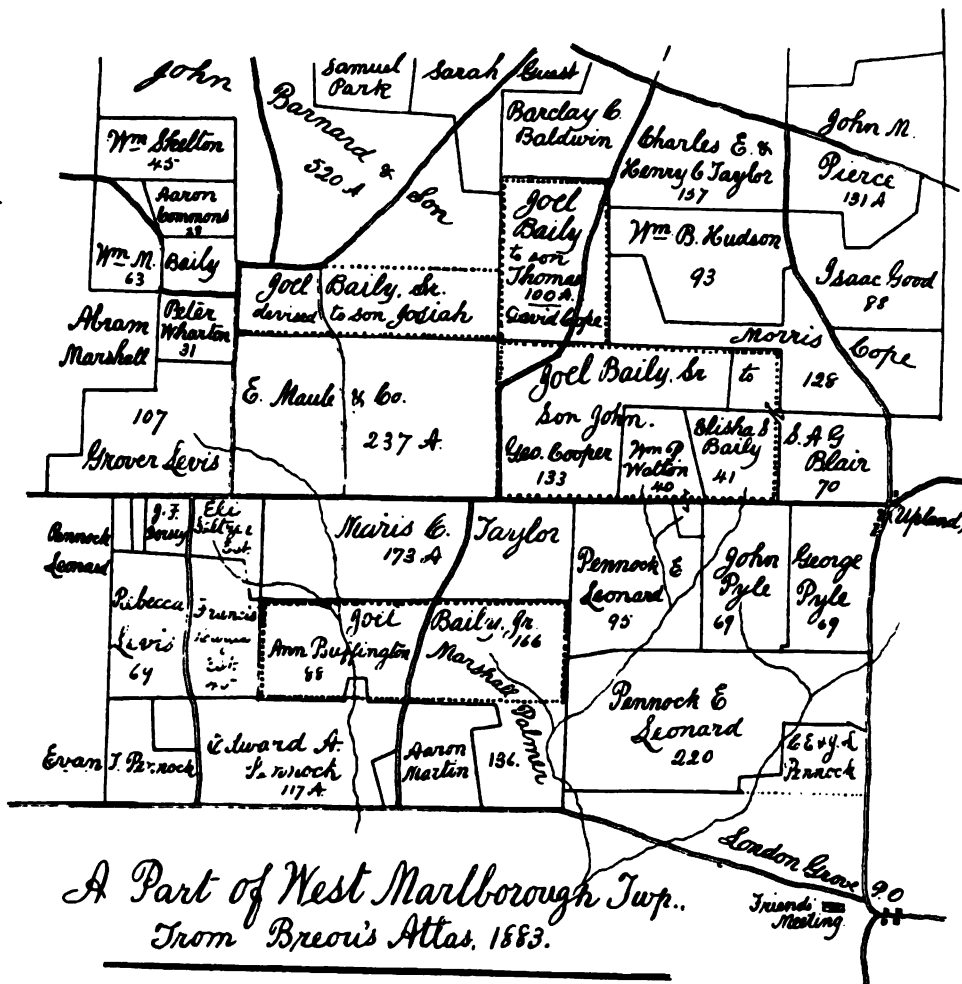 John
Barnard &
Son
520 A
Samuel
Park
Sarah Guest
Barclay C.
Baldwin
Charles E. &
Henry C Taylor
157
John M.
Pierce
131 A
Wm Skelton
45
Aaron
Commons
Wm M. Baily
63
Joel
Baily
to son
Thomas
100 A.
David Cope
Wm B. Hudson
93
Isaac Good
88
Joel Baily, Sr.
devised to son Josiah
Abram
Marshall
Peter
Wharton
31
Morris Cope
128
E. Maule & Co.
237 A.
Joel Baily, Sr to
son John.
Geo. Cooper
133
Wm P
Walton
40
Elisha S
Baily
41
S. A G
Blair
70
107
Grover Levis
Upland,
Pennock
Leonard
J. F.
Dorsey
Eli
Est.
E. Taylor
173 A
Pennock E
Leonard
95
John
Pyle
69
George
Pyle
69
Rebecca
Levis
64
Francis
Est.
Joel Baily, Jr.
166
Ann Buffington
88
Marshall
Palmer
136.
Pennock E
Leonard
220
Pennock
Evan T. Pennock
Edward A.
Pennock
117 A.
Aaron
Martin
London Grove P.O
Friends
Meeting.
A Part of West Marlborough Twp..
From Breou's Atlas, 1883.